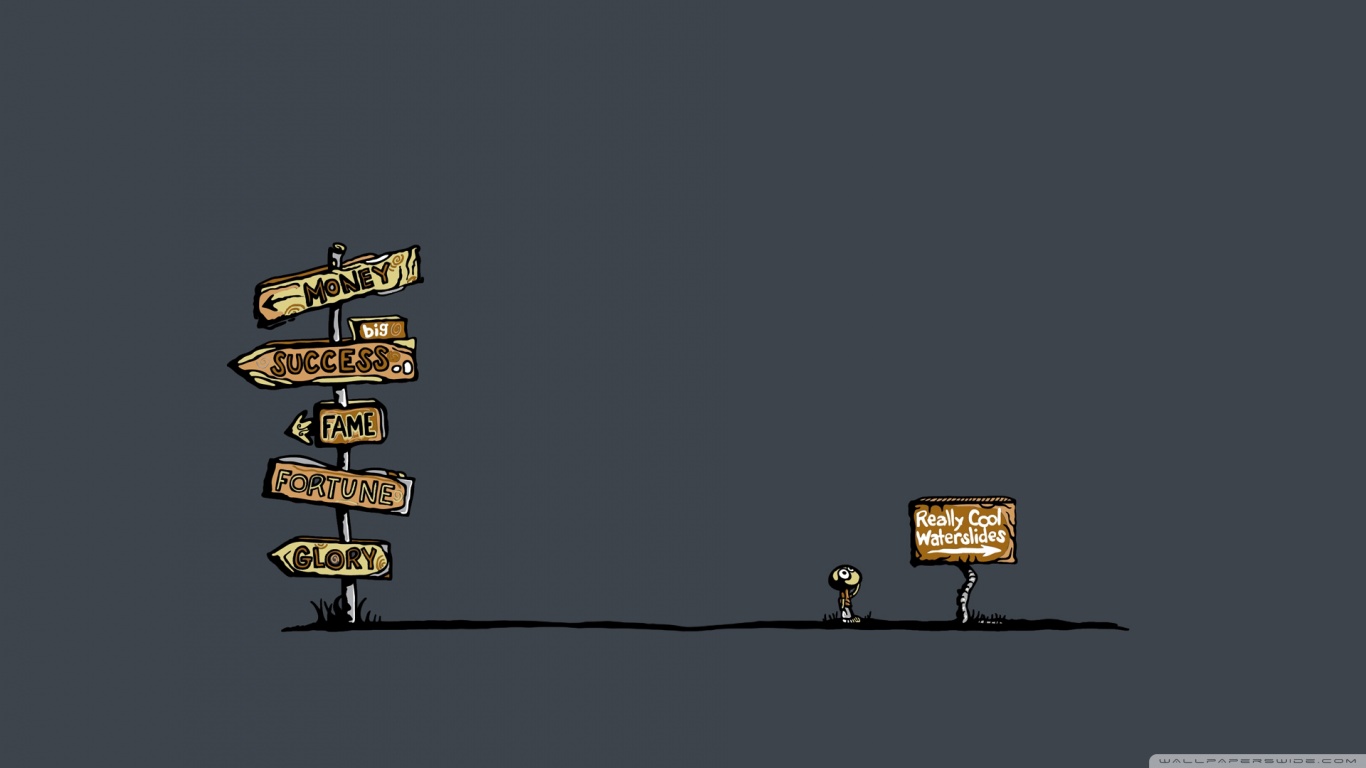 MONEY
big
SUCCESS
FAME
FORTUNE
GLORY
Really Cool
Waterslides
WALLPAPERSWIDE.COM